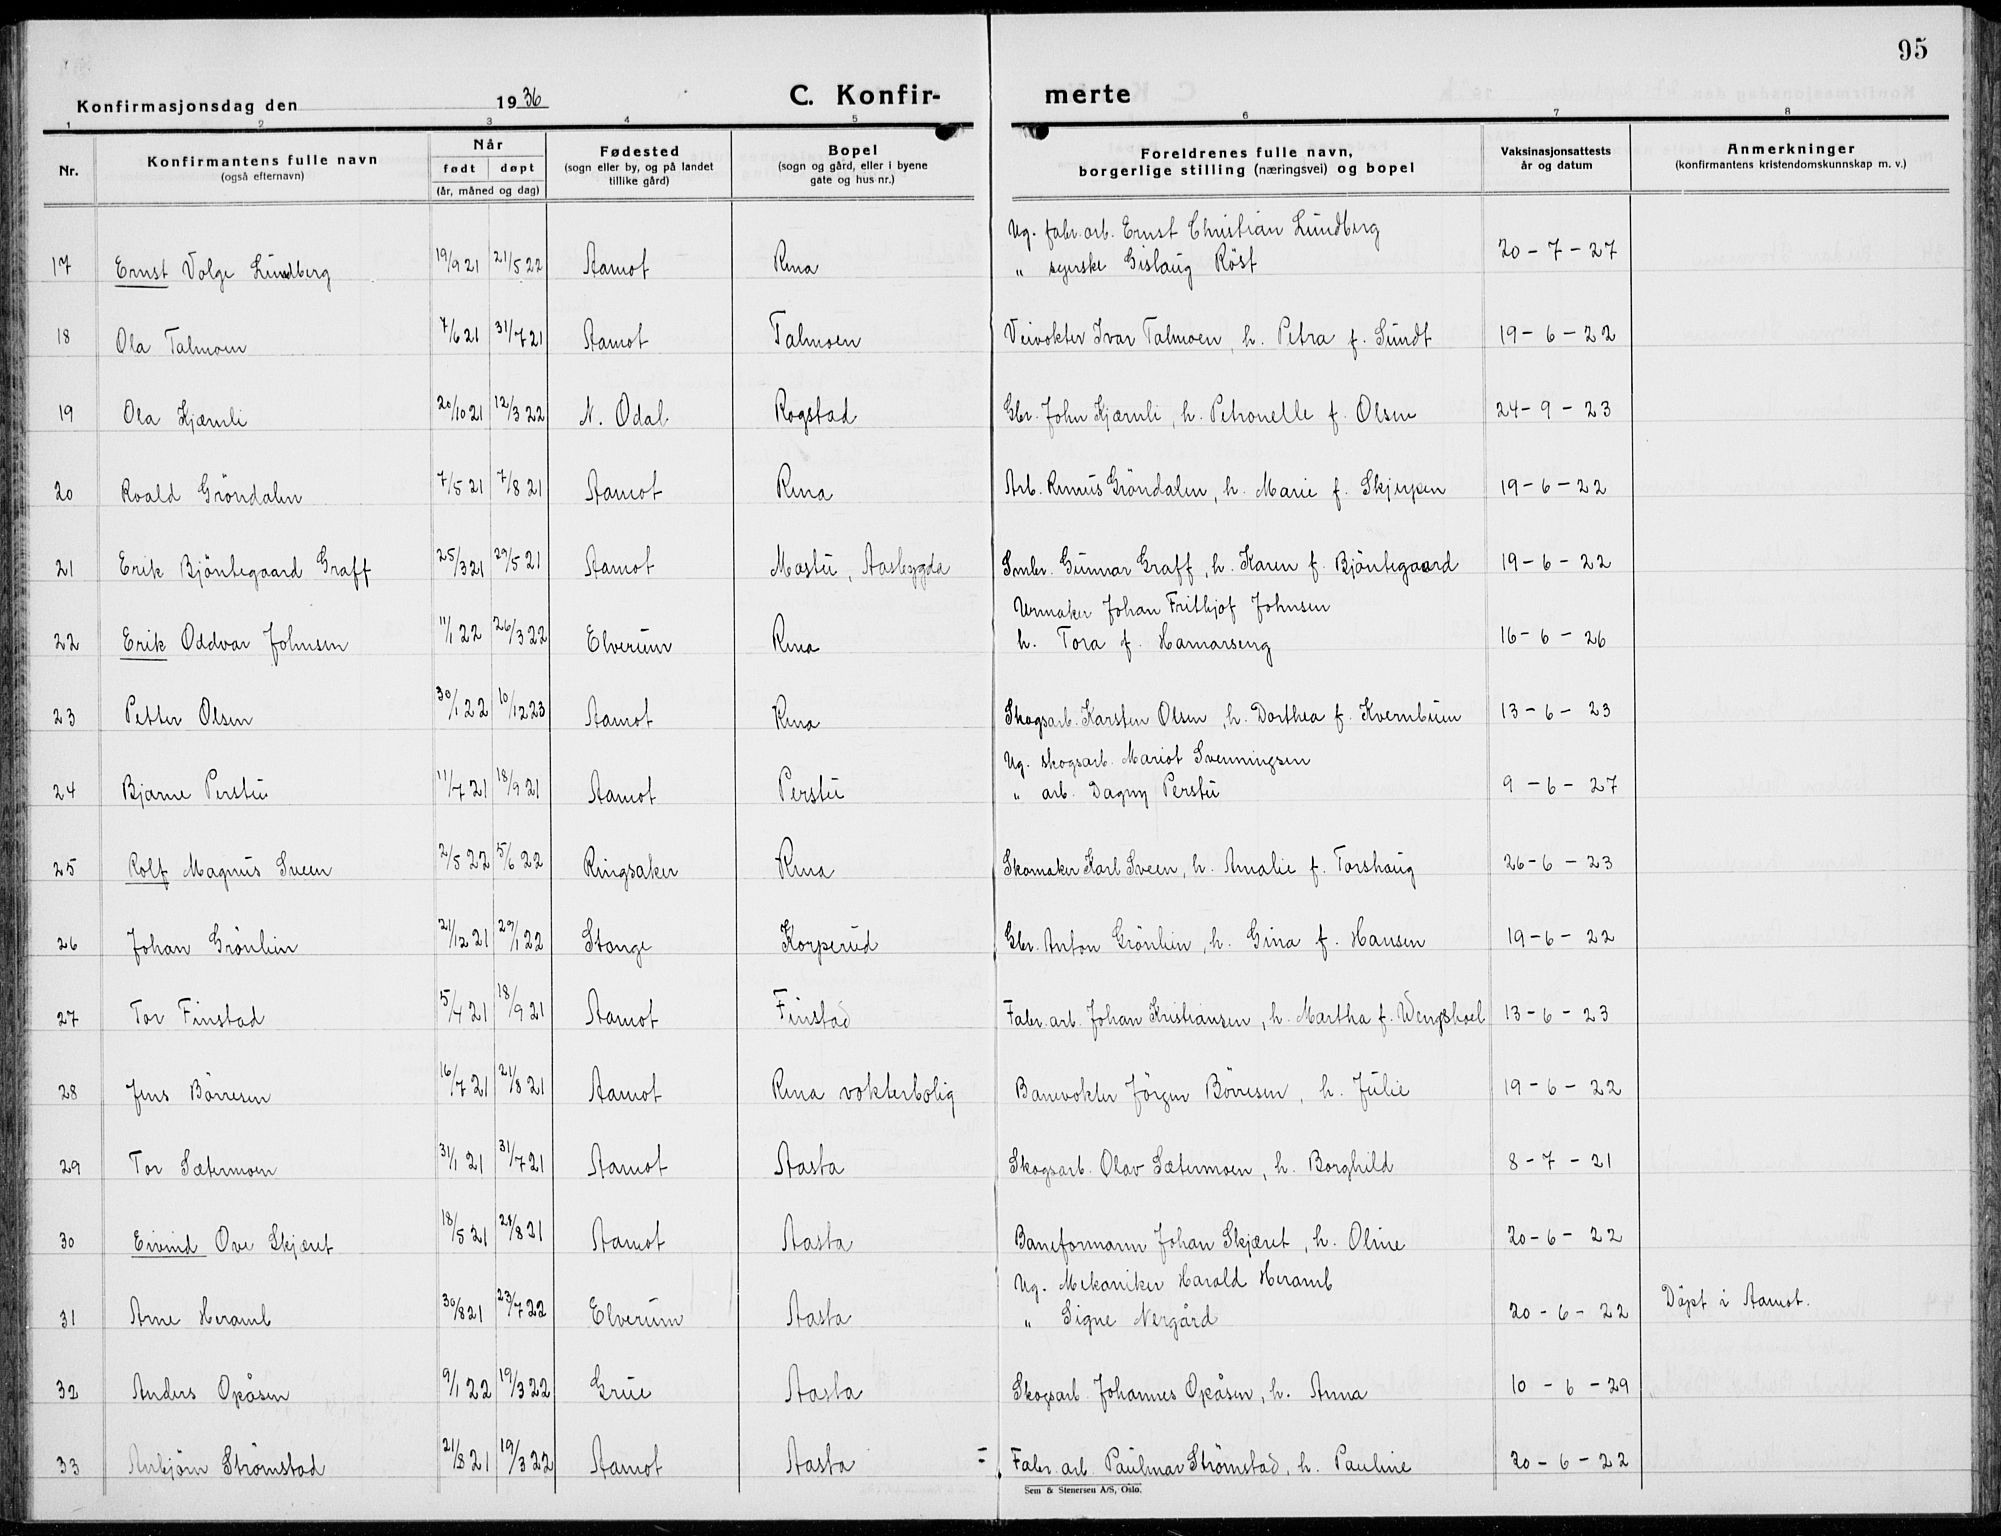 95
Konfirmasjonsdag den 1936 C. Konfir- merte
1 2 3 4 5 6 7 8
Nr. Konfirmantens fulle navn (også efternavn) Når født døpt (år, måned og dag) Fødested (sogn eller by, og på landet tillike gård) Bopel (sogn og gård, eller i byene gate og hus nr.) Foreldrenes fulle navn, borgerlige stilling (næringsvei) og bopel Vaksinasjonsattests år og datum Anmerkninger (konfirmantens kristendomskunnskap m. v.)
Ug. fabr. arb. Ernst Christian Lundberg
17 Ernst Volge Lundberg 19/9 21 21/5 22 Aamot Rena " syerske Gislaug Röst 20-7-27
18 Ola Talmoen 7/6 21 31/7 21 Aamot Talmoen Veivokter Ivar Talmoen, h. Petra f. Sundt 19-6-22
19 Ola Kjærnli 20/10 21 12/3 22 N. Odal Rogstad Gbr. John Kjærnli, h. Petronelle f. Olsen 24-9-23
20 Roald Gröndalen 7/5 21 7/8 21 Aamot Rena Arb. Rimus Gröndalen, h. Marie f. Skjerpen 19-6-22
21 Erik Bjöntegaard Graff 25/3 21 29/5 21 Aamot Mostu, Aasbygda Smbr. Gunnar Graff, h. Karen f. Bjöntegaard 19-6-22
Urmaker Johan Frithjof Johnsen
22 Erik Oddvar Johnsen 11/1 22 26/3 22 Elverum Rena h. Tora f. Hamarseng 16-6-26
23 Petter Olsen 30/1 22 10/12 23 Aamot Rena Skogsarb. Karsten Olsen, h. Dorthea f. Kvernbuen 13-6-23
Ug. skogsarb. Mariot Svenningsen
24 Bjarne Perstu 11/7 21 18/9 21 Aamot Perstu " arb. Dagny Perstu 9-6-27
25 Rolf Magnus Sveen 2/5 22 5/6 22 Ringsaker Rena Skomaker Karl Sveen, h. Amalie f. Torshaug 26-6-23
26 Johan Grönlien 21/12 21 29/1 22 Stange Korperud Gbr. Anton Grönlien, h. Gina f. Hansen 19-6-22
27 Tor Finstad 5/4 21 18/9 21 Aamot Finstad Fabr. arb. Johan Kristiansen, h. Martha f. Wengshoel 13-6-23
28 Jens Börresen 16/7 21 21/8 21 Aamot Rena vokterbolig Banevokter Jörgen Börresen, h. Julie 19-6-22
29 Tor Sætermoen 31/1 21 31/7 21 Aamot Aasta Skogsarb. Olav Sætermoen, h. Borghild 8-7-21
30 Eivind Ove Skjæret 18/5 21 28/8 21 Aamot Aasta Baneformann Johan Skjæret, h. Oline 20-6-22
Ug. Mekaniker Harald Heramb
31 Arne Heramb 30/8 21 23/7 22 Elverum Aasta " Signe Nergård 20-6-22 Döpt i Aamot.
32 Anders Opåsen 9/1 22 19/3 22 Grue Aasta Skogsarb. Johannes Opåsen, h. Anna 10-6-29
33 Anbjörn Strömstad 21/8 21 19/3 22 Aamot Aasta = Fabr. arb. Paulmar Strömstad, h. Pauline 20-6-22
Sem & Stenersen A/S, Oslo.